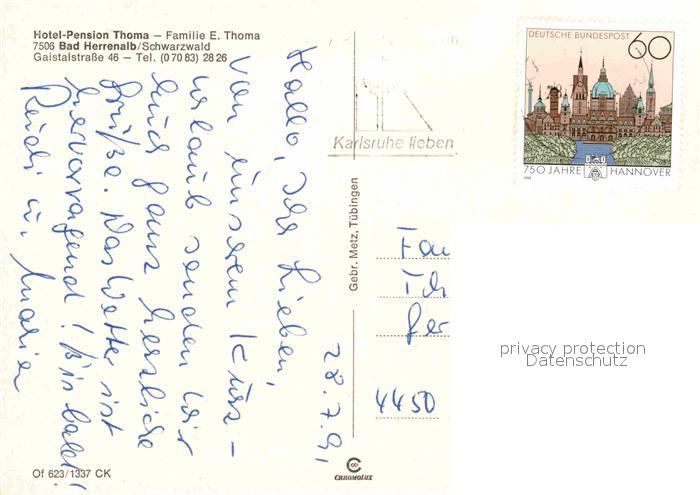 Hotel-Pension Thoma – Familie E. Thoma
7506 Bad Herrenalb/Schwarzwald
Gaistalstraße 46 – Tel. (0 70 83) 28 26
28.7.91
Hallo, Ihr Lieben,
von unserem Kurz-
urlaub senden wir
Euch ganz herzliche
Grüße. Das Wetter ist
hervorragend! Bis bald!
Rudi u. Maria
Of 623/1337 CK
Karlsruhe lieben
Gebr. Metz, Tübingen
CHROMOLUX
DEUTSCHE BUNDESPOST 60
750 JAHRE HANNOVER
Fam
4450
privacy protection
Datenschutz